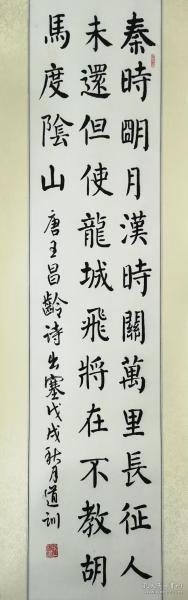 秦時明月漢時關萬里長征人
未還但使龍城飛將在不教胡
馬度陰山
唐王昌齡诗出塞戊戌秋月道训